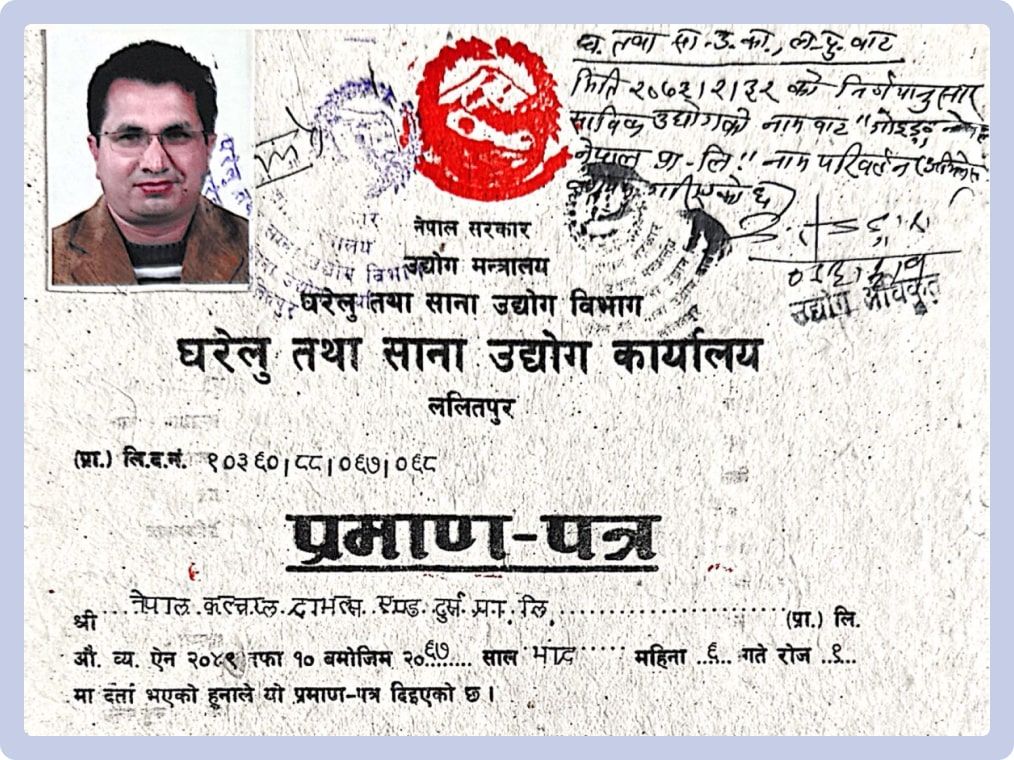 घ. तथा सा.उ.का., ल.पु. बाट
मिति २०७३।२।३२ को निर्णयानुसार
साविक उद्योगको नाम बाट "गोइङ्ग
नेपाल प्रा. लि." नाम परिवर्तन
गरिएको छ
उद्योग अधिकृत
नेपाल सरकार
उद्योग मन्त्रालय
घरेलु तथा साना उद्योग विभाग
घरेलु तथा साना उद्योग कार्यालय
ललितपुर
(प्रा.) लि.द.नं. १०३६०।८८।०६७।०६८
प्रमाण-पत्र
श्री नेपाल कल्चरल ट्राभल्स एण्ड टुर्स प्रा. लि. (प्रा.) लि.
औ. व्य. ऐन २०४९ दफा १० बमोजिम २०६७ साल भाद्र महिना ६ गते रोज १
मा दर्ता भएको हुनाले यो प्रमाण-पत्र दिइएको छ ।